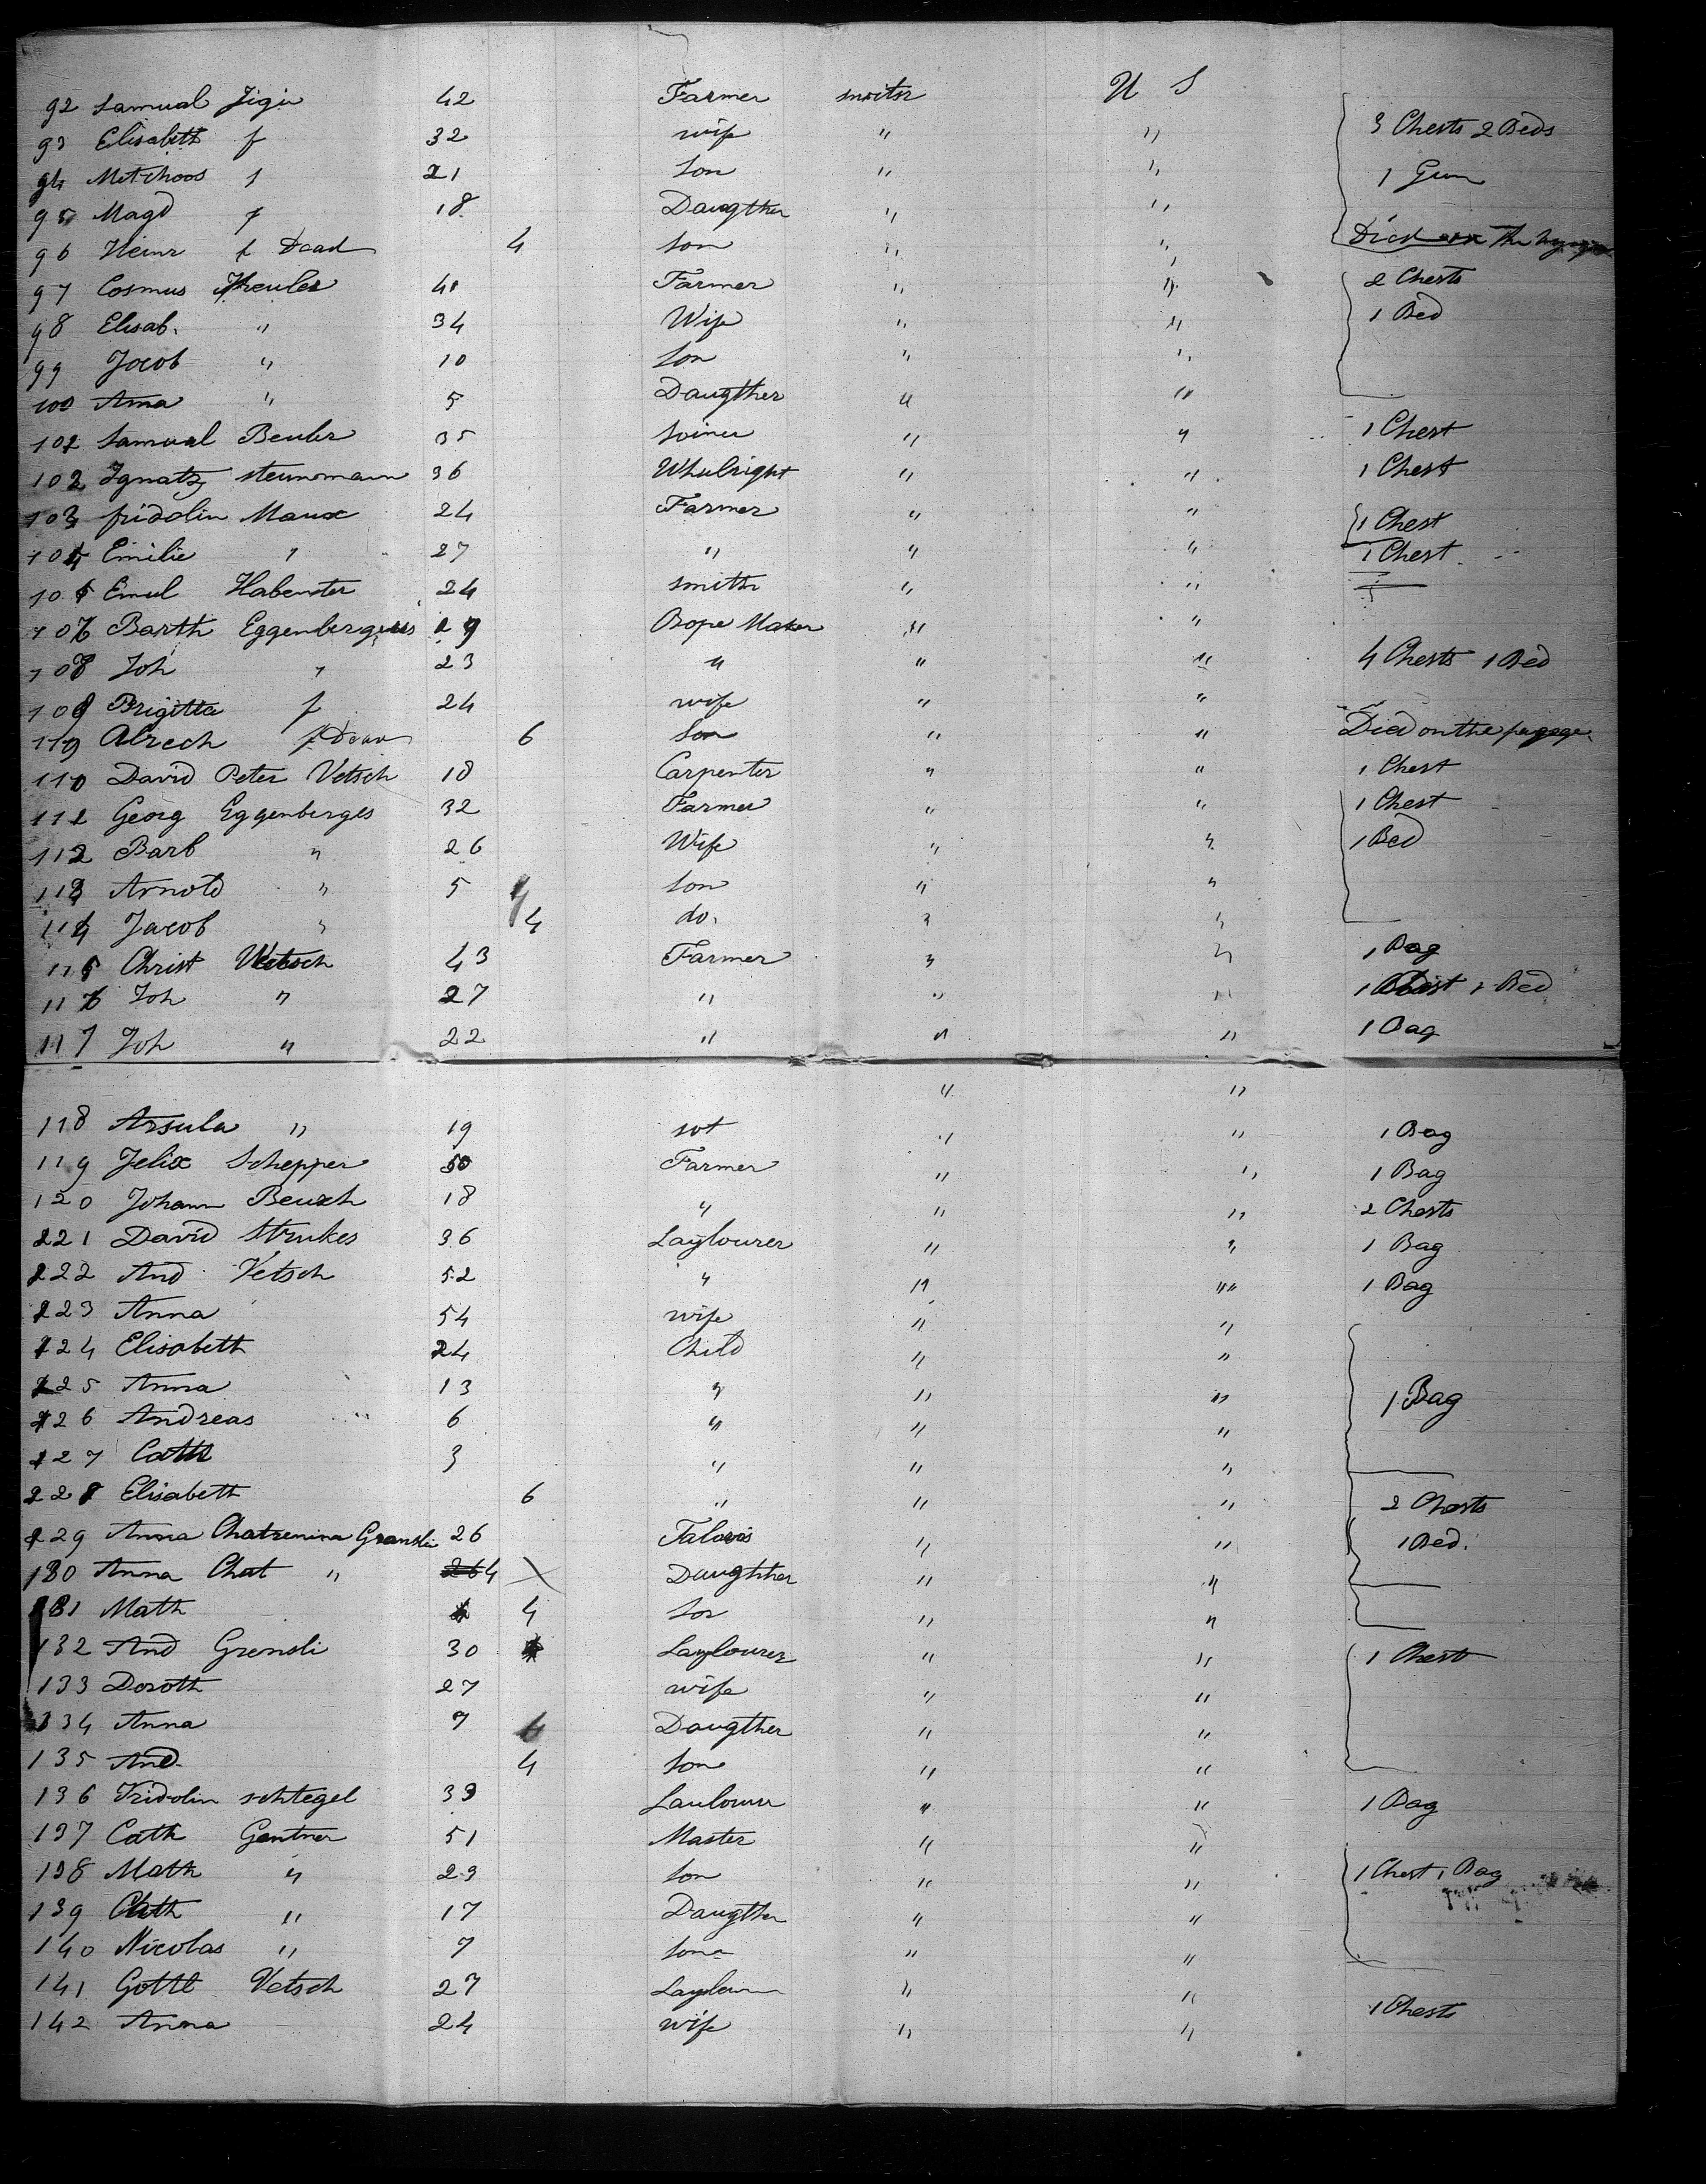 92 Samual Jigi 42 Farmer switsr U S
93 Elisabett f 32 wife " " 3 Chests 2 Beds
94 f 21 Son " " 1 Gun
95 Magd f 18 Daugther " "
96 Heinr f Dead 4 Son " " Died The
97 Cosmus 41 Farmer " " 2 Chests
98 Elisab. " 34 Wife " " 1 Bed
99 Jacob " 10 Son " "
100 Anna " 5 Daugther " "
101 Samual Beuler 35 Joiner " " 1 Chest
102 Ignatz 36 Whulright " " 1 Chest
103 fridolin Manx 24 Farmer " " 1 Chest
104 Emilie " 27 " " " 1 Chest
105 Emul 24 smith " "
106 Barth Eggenberger 29 Rope Maker " "
108 Joh " 23 " " " 4 Chests 1 Bed
109 Brigitta f 24 wife " "
119 Alrech f Dead 6 Son " " Died on the
110 David Peter Vetsch 18 Carpenter " " 1 Chest
111 Georg Eggenberges 32 Farmer " " 1 Chest
112 Barb " 26 Wife " " 1 Bed
113 Arnold " 5 Son " "
114 Jacob " 4 do. " "
115 Christ Vetsch 43 Farmer " " 1 Bag
116 Joh " 27 " " " 1 Chest 1 Bed
117 Joh " 22 " " " 1 Bag
" "
118 Arsula " 19 sot " " 1 Bag
119 Jelix Schepper 50 Farmer " " 1 Bag
120 Johann Beusch 18 " " " 2 Chests
221 David Strukes 36 Laylourer " " 1 Bag
222 And Vetsch 52 " " " 1 Bag
223 Anna 54 wife " "
124 Elisabett 24 Child " "
125 Anna 13 " " " 1 Bag
126 Andreas 6 " " "
127 Cath 3 " " "
228 Elisabett 6 " " " 2 Chests
129 Anna Chatrenina Gransli 26 " " 1 Bed.
130 Anna Chat " 4 Daughther " "
131 Math 4 Son " "
132 And Grensli 30 Laylourer " " 1 Chest
133 Doroth 27 wife " "
134 Anna 7 Daugther " "
135 And. 4 Son " "
136 Fridolin schtegel 33 Laulourer " " 1 Bag
137 Cath Gantner 51 Master " "
138 Math " 23 Son " " 1 Chest 1 Bag
139 Cath " 17 Daugther " "
140 Nicolas " 7 Son " "
141 Gottl Vetsch 27 " "
142 Anna 24 wife " " 1 Chests